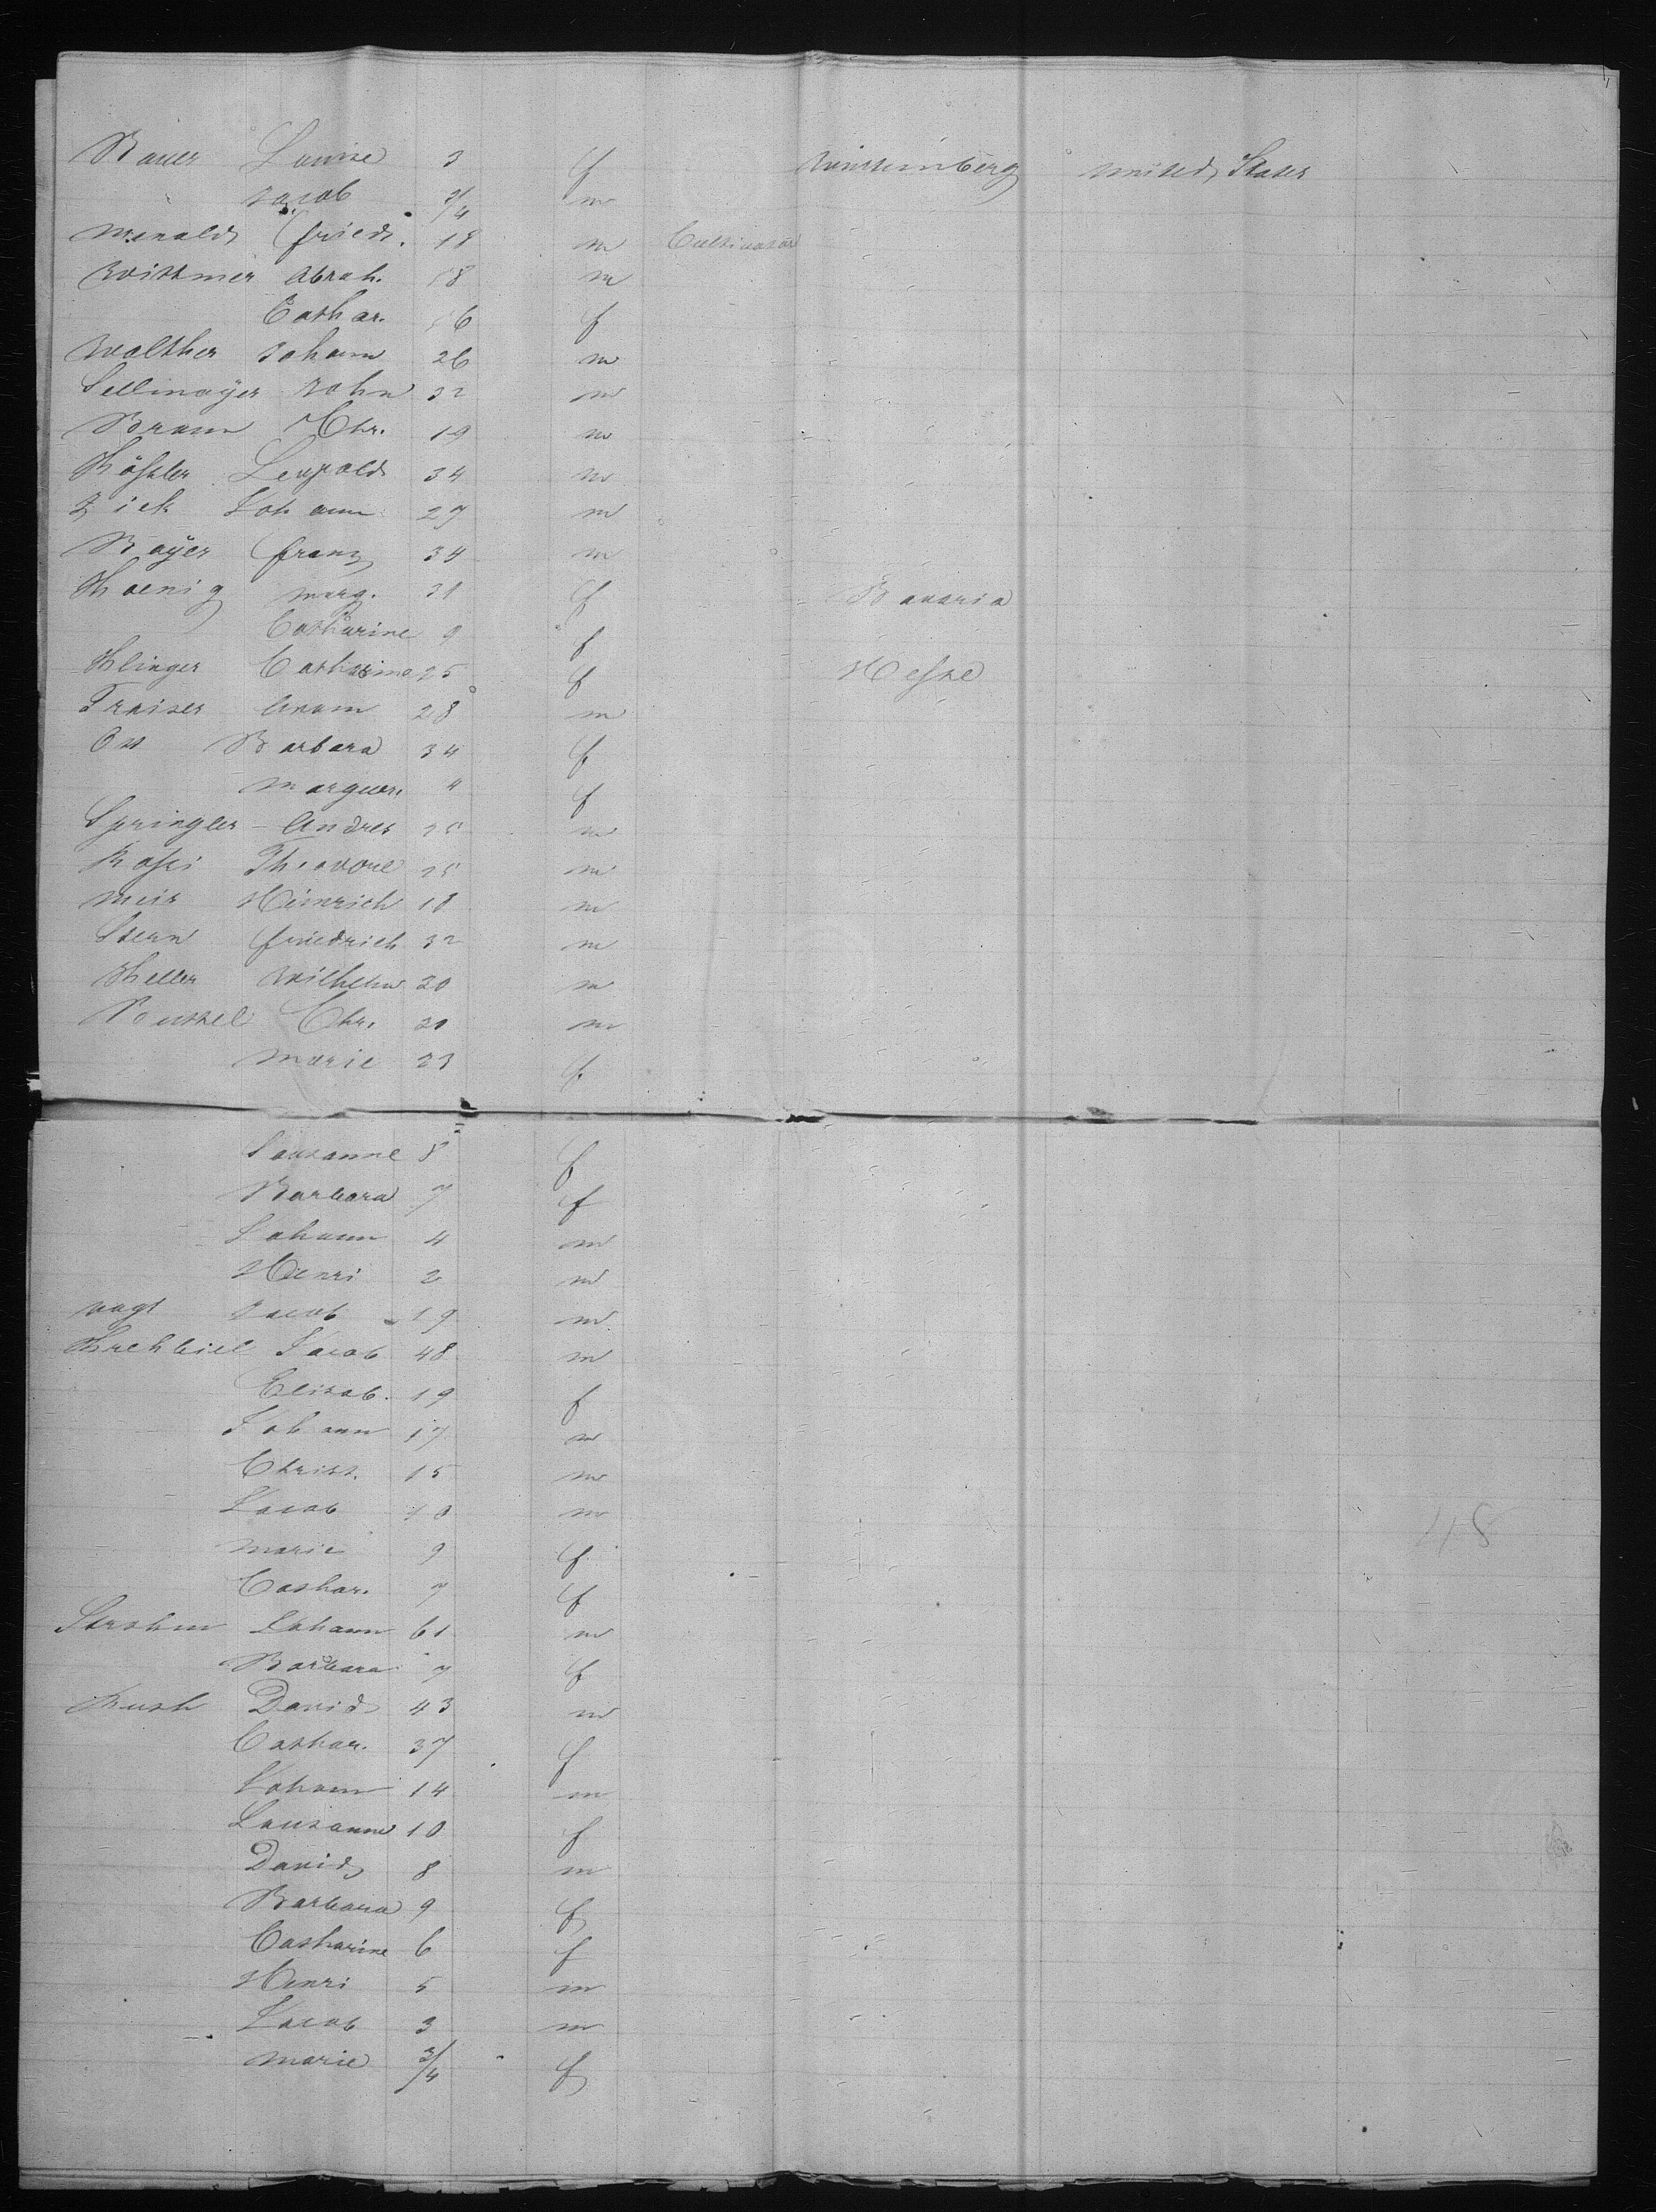 Bauer Louise 3 f Würtemberg united States
Jacob 3/4 m
Friedr. 18 m Cultivator
Wittmer Abrah. 18 m
Cathar. 56 f
Walther Johann 26 m
Sellmayer John 32 m
Braun Chr. 19 m
Kößler Leopold 34 m
Zick Johann 27 m
Bayer Franz 34 m
Koenig Marg. 31 f Bavaria
Catharine 9 f
Klinger Catharina 25 f Hesse
Traiser Adam 28 m
Ott Barbara 34 f
Marguer. 4 f
Springler Andres 25 m
Theodore 25 m
Meir Heinrich 18 m
Stern Friedrich 32 m
Keller Wilhelm 20 m
Chr. 31 m
Marie 23 f
Sousanne 8 f
Barbara 7 f
Johann 4 m
Henri 2 m
Vogt Jacob 19 m
Krehbiel Jacob 48 m
Elisab. 19 f
Johann 17 m
Christ. 15 m
Jacob 10 m
Marie 9 f
Cathar. 7 f
Strohm Johann 61 m
Barbara 7 f
Rush David 43 m
Cathar. 37 f
Johann 14 m
Sousanne 10 f
David 8 m
Barbara 9 f
Catharine 6 f
Henri 5 m
Jacob 3 m
Marie 3/4 f
48